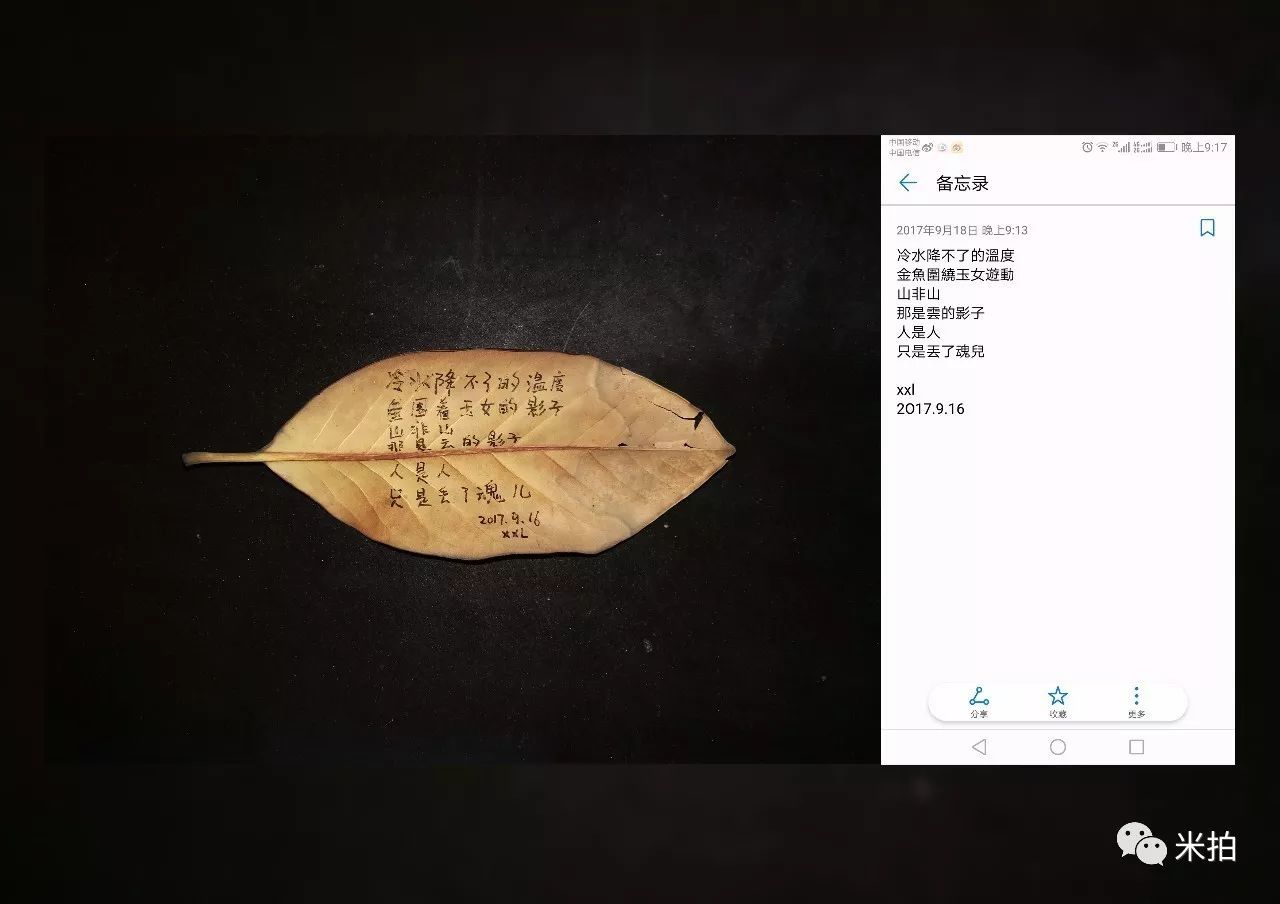 冷水降不了的温度
金围着玉女的影子
山非山
那是云的影子
人是人
只是丢了魂儿
2017.9.16
xxL
中国移动
中国电信
晚上9:17
备忘录
2017年9月18日 晚上9:13
冷水降不了的溫度
金魚圍繞玉女遊動
山非山
那是雲的影子
人是人
只是丟了魂兒
xxl
2017.9.16
分享
收藏
更多
米拍